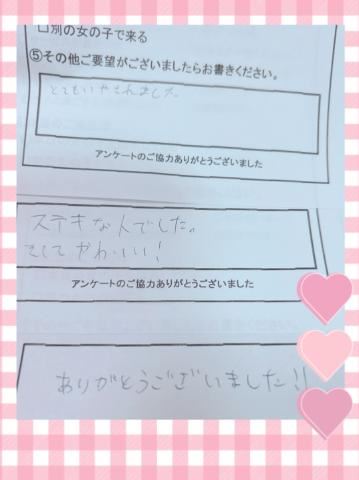 □別の女の子で来る
⑤その他ご要望がございましたらお書きください。
とてもいやされました
アンケートのご協力ありがとうございました
ステキな人でした。
そしてかわいい!
アンケートのご協力ありがとうございました
ありがとうございました!!